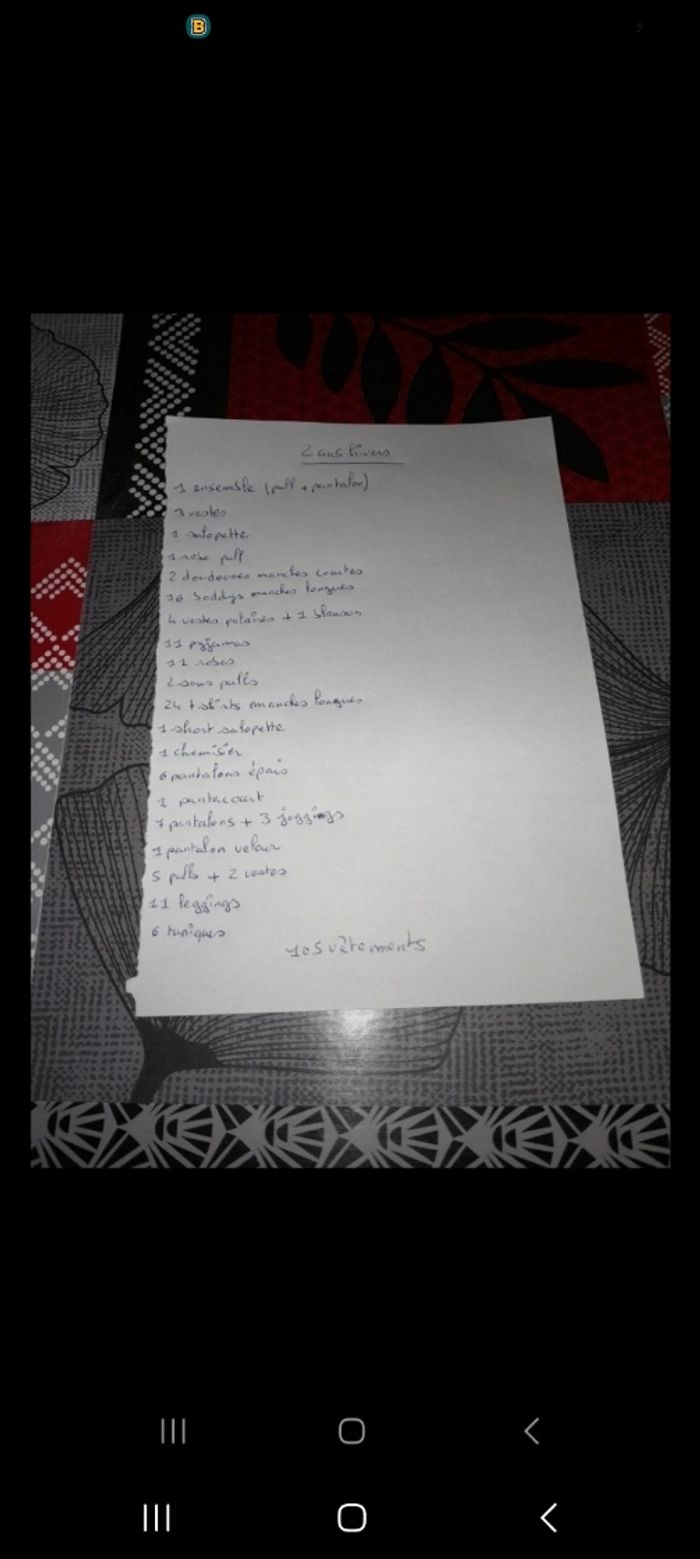 B
2 ans hivers
1 ensemble (pull + pantalon)
3 vestes
1 salopette
1 robe pull
2 doudounes manches courtes
16 boddys manches longues
4 vestes polaires + 1 blouson
11 pyjamas
11 robes
2 sous pulls
24 t shirts manches longues
1 short salopette
1 chemisier
6 pantalons épais
1 pantacourt
7 pantalons + 3 joggings
1 pantalon velour
5 pulls + 2 vestes
11 leggings
6 tuniques
105 vêtements